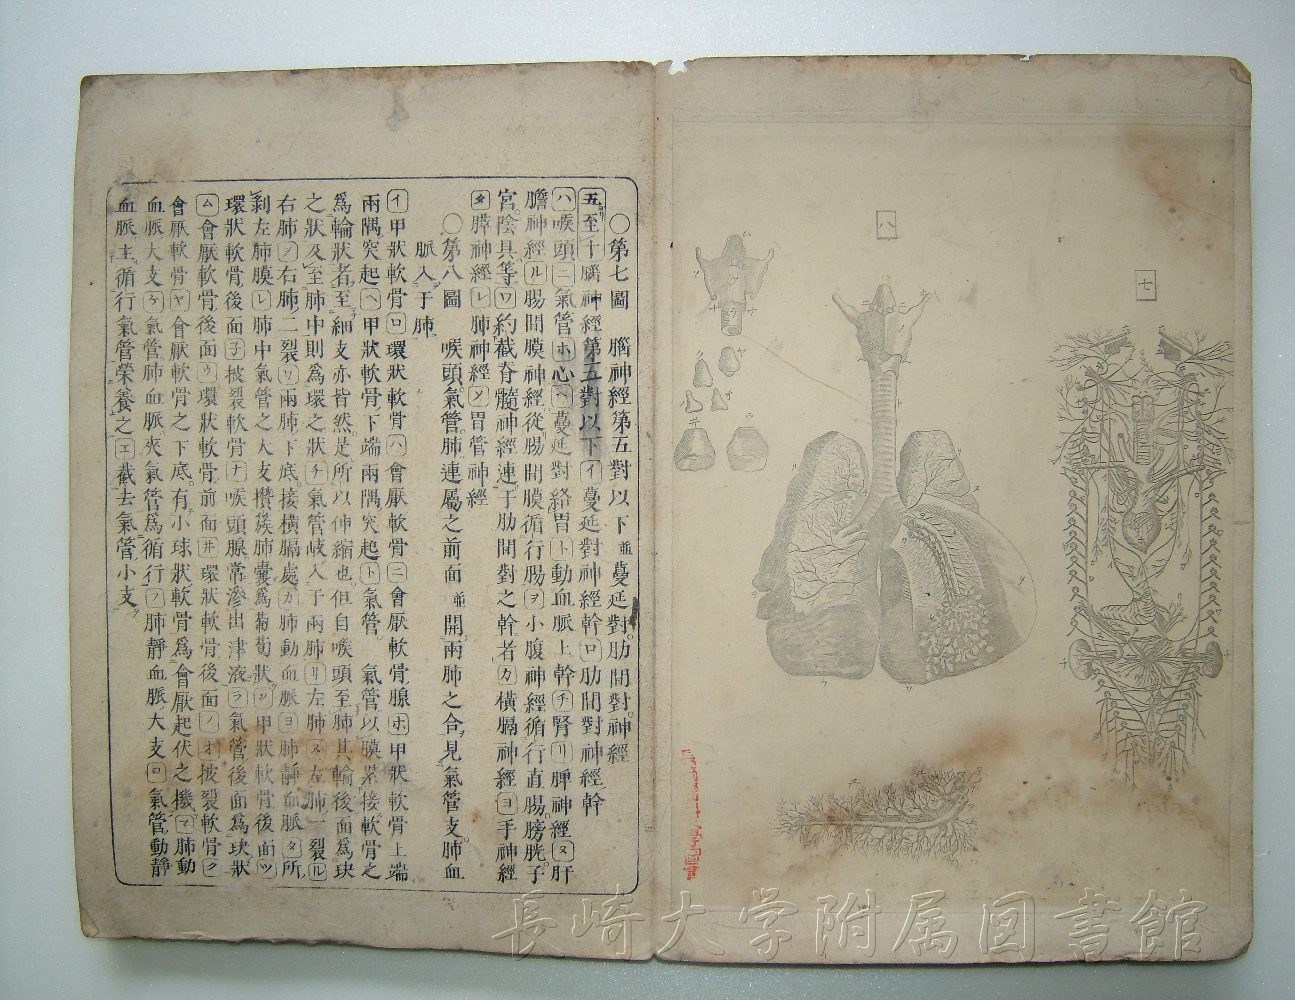 八
七
〇第七圖　腦神經第五對以下並蔓延對肋間對神經
五至十腦神經第五對以下イ蔓延對神經幹ロ肋間對神經幹
ハ喉頭ニ氣管ホ心ヘ蔓延對絡胃ト動血脈上幹チ腎リ脾神經ヌ肝
膽神經ル腸間膜神經從腸間膜循行腸ヲ小腹神經循行直腸膀胱子
宮陰具等ワ約截脊髓神經連于肋間對之幹者カ橫膈神經ヨ手神經
タ膵神經レ肺神經ソ胃管神經
〇第八圖　喉頭氣管肺連屬之前面並開兩肺之合見氣管支肺血
脈入于肺
イ甲狀軟骨ロ環狀軟骨ハ會厭軟骨ニ會厭軟骨腺ホ甲狀軟骨上端
兩隅突起ヘ甲狀軟骨下端兩隅突起ト氣管　氣管以膜累接軟骨之
爲輪狀者至細支亦皆然是所以伸縮也但自喉頭至肺其輪後面爲玦
之狀及至肺中則爲環之狀チ氣管岐入于兩肺リ左肺ヌ左肺一裂ル
右肺ノ右肺二裂ワ兩肺下底接橫膈處カ肺動血脈ヨ肺靜血脈タ所
剥左肺膜レ肺中氣管之大支攢簇肺囊爲葡萄狀ソ甲狀軟骨後面ツ
環狀軟骨後面子披裂軟骨ナ喉頭腺常滲出津液ラ氣管後面爲玦狀
ム會厭軟骨後面ウ環狀軟骨前面井環狀軟骨後面ノオ披裂軟骨ク
會厭軟骨ヤ會厭軟骨之下底有小球狀軟骨爲會厭起伏之機マ肺動
血脈大支ケ氣管肺血脈夾氣管爲循行フ肺靜血脈大支コ氣管動靜
血脈主循行氣管榮養之エ截去氣管小支
長崎大学附属図書館